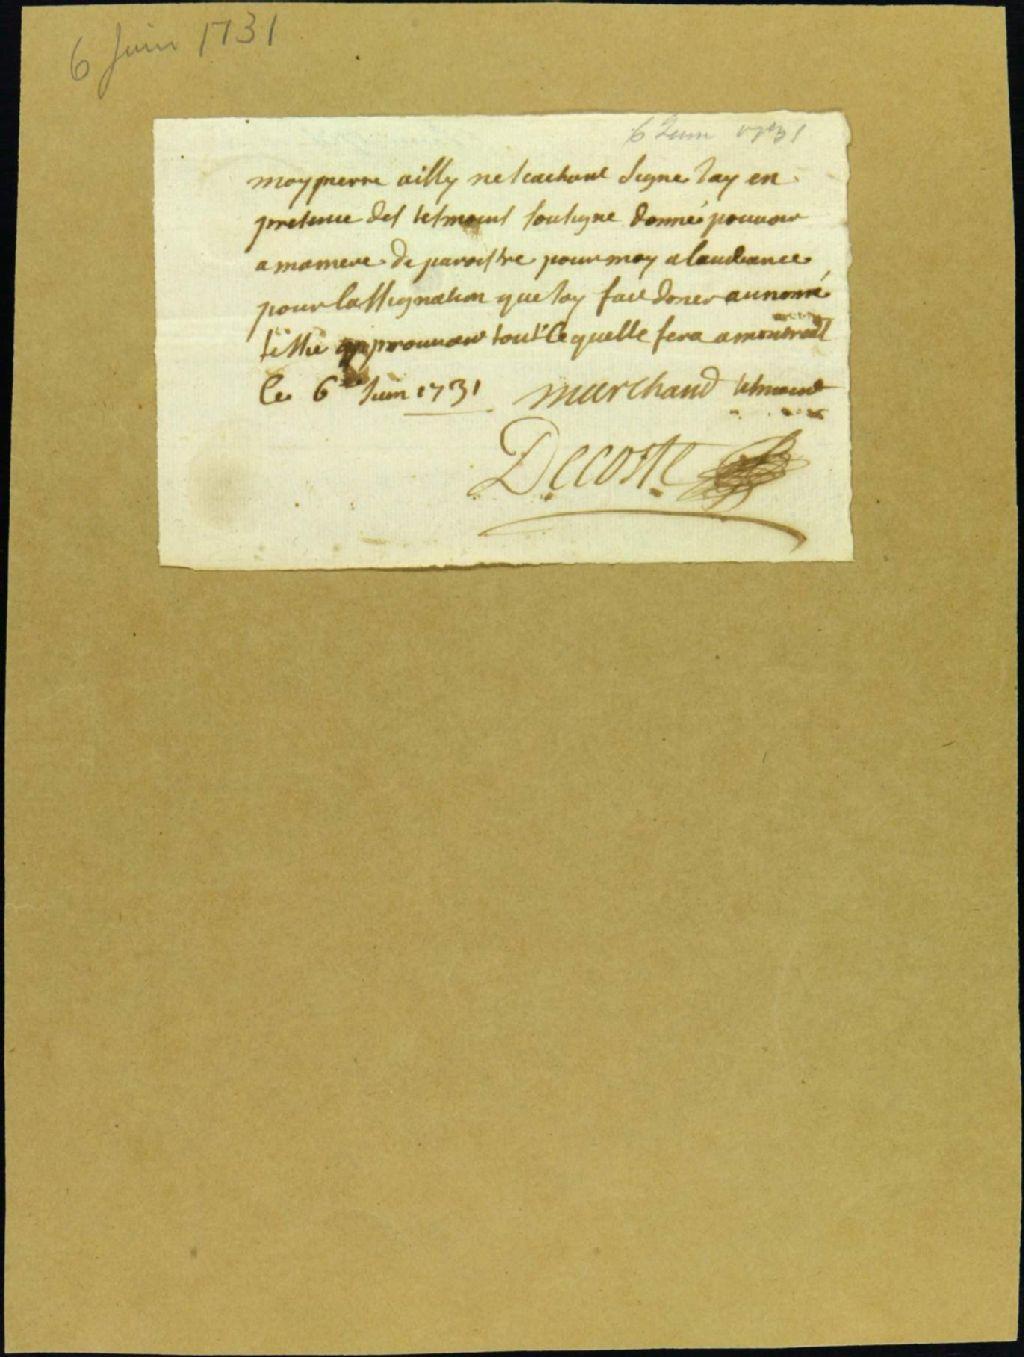 6 Juin 1731
6 Juin 1731
moy pierre ailly ne scachant signe Jay en
presence des tesmoins sousigne donné pouvoir
a ma mere de paroistre pour moy a laudiance
pour lassignation que Jay fait doner au nomé
approuvant tout ce quelle fera a montreall
ce 6e Juin 1731 marchand tesmoin
Decoste